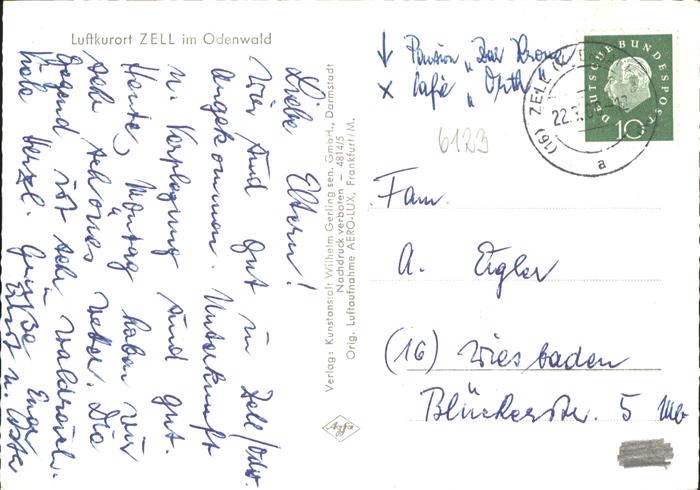 Luftkurort ZELL im Odenwald
Liebe Eltern!
Wir sind gut in Zell/Odw.
angekommen. Unterkunft
u. Verpflegung sind gut.
Heute, Montag haben wir
sehr schönes Wetter. Die
Gegend ist sehr waldreich.
Viele herzl. Grüsse Euer
Verlag: Kunstanstalt Wilhelm Gerling sen. GmbH., Darmstadt
Nachdruck verboten – 4814/5
Orig. Luftaufnahme AERO-LUX, Frankfurt/M.
Agfa
↓ Pension „Zur Krone"
x Café „Orth"
DEUTSCHE BUNDESPOST
10
(16) ZELL
22.
a
6123
Fam.
A. Eigler
(16) Wiesbaden
Blücherstr. 5 Mb